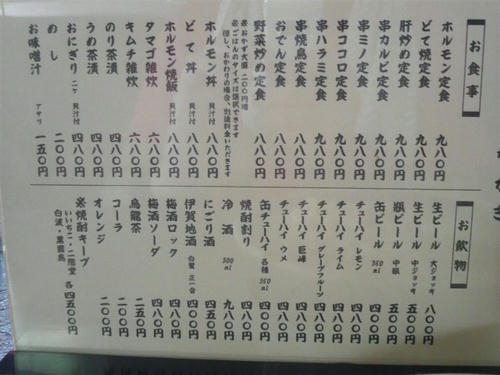 お食事
ホルモン定食 九八〇円
どて焼定食 九八〇円
肝炒め定食 九八〇円
串カルビ定食 九八〇円
串ミノ定食 九八〇円
串ココロ定食 九八〇円
串ハラミ定食 九八〇円
串焼鳥定食 八八〇円
おでん定食 八八〇円
野菜炒め定食 八八〇円
※おかず大盛 二〇〇円増
※ごはんのサイズは選択できます
但し、おかわりの場合、別途料金いただきます
ホルモン丼 貝汁付 八八〇円
どて丼 貝汁付 八八〇円
ホルモン焼飯 貝汁付 八八〇円
タマゴ雑炊 六八〇円
キムチ雑炊 六八〇円
のり茶漬 四八〇円
うめ茶漬 四八〇円
おにぎり ニケ 貝汁付 四八〇円
めし 二〇〇円
お味噌汁 アサリ 一五〇円
お飲物
生ビール 大ジョッキ 八〇〇円
生ビール 中ジョッキ 五〇〇円
瓶ビール 中瓶 五五〇円
缶ビール 350ml 四八〇円
チューハイ レモン 四八〇円
チューハイ ライム 四八〇円
チューハイ グレープフルーツ 四八〇円
チューハイ 巨峰 四八〇円
チューハイ ウメ 四八〇円
缶チューハイ 各種 350ml 四八〇円
焼酎割り 四八〇円
冷酒 300ml 九八〇円
にごり酒 四八〇円
伊賀地酒 白鷺 正一合 四八〇円
梅酒ロック 四八〇円
梅酒ソーダ 四八〇円
烏龍茶 二五〇円
コーラ 二〇〇円
オレンジ 二〇〇円
※焼酎キープ 各四五〇〇円
いいちこ・二階堂
白波・黒霧島